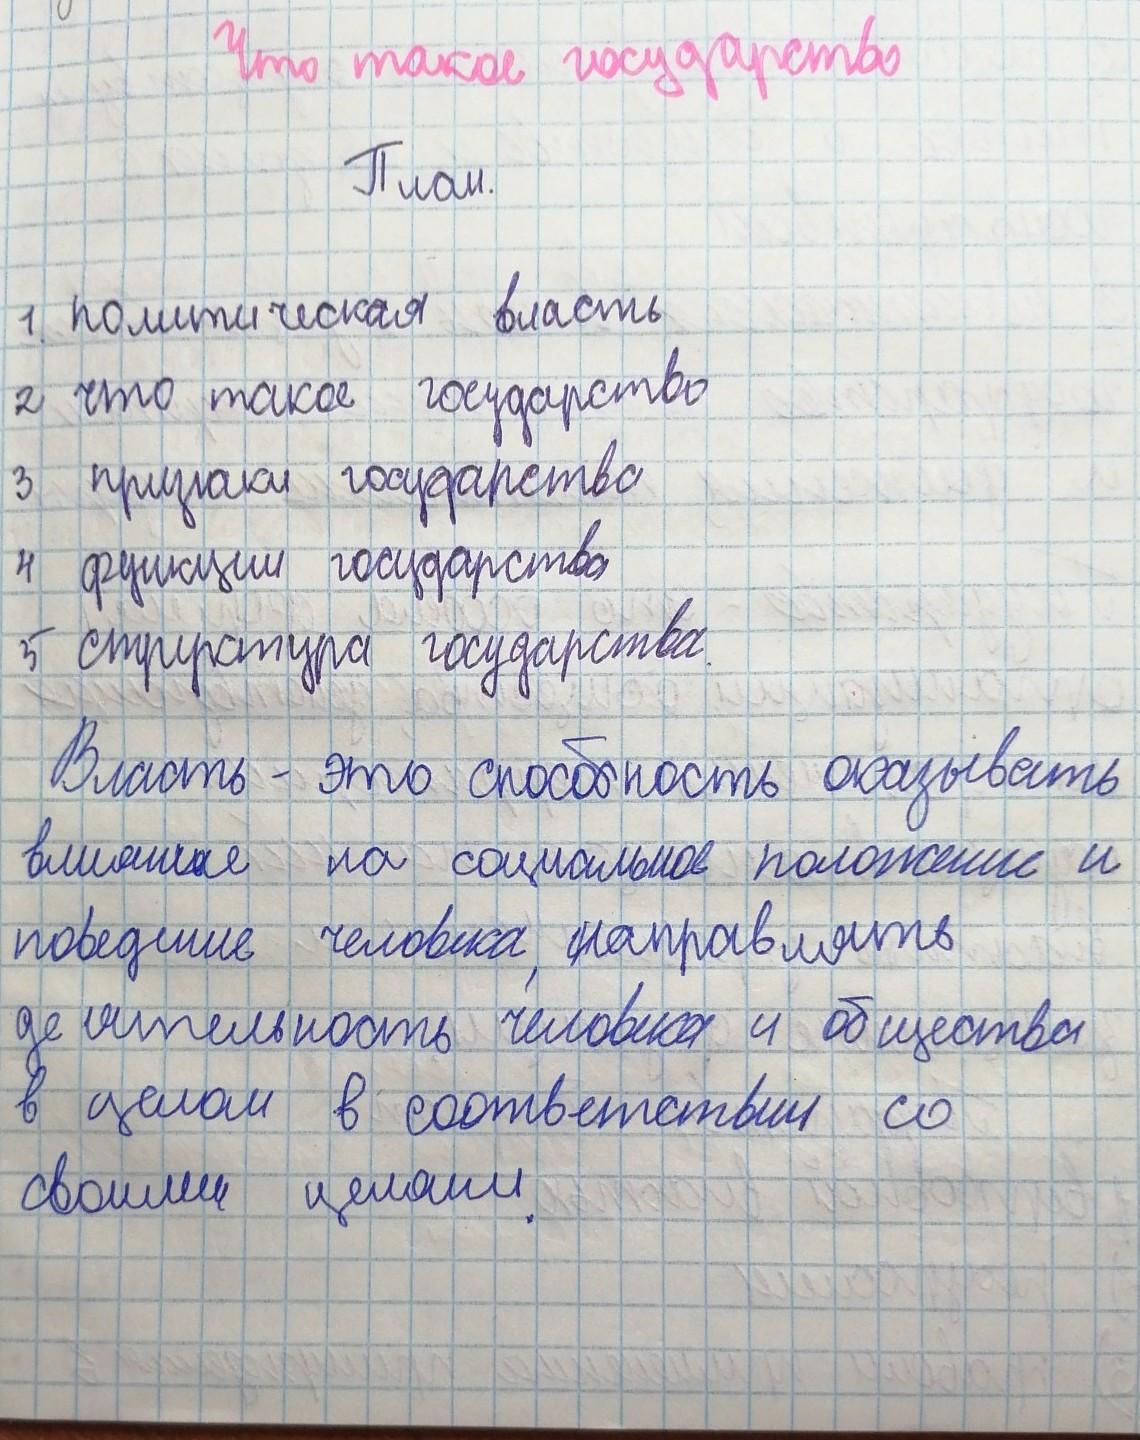 Что такое государство
План.
1. политическая власть
2 что такое государство
3 признаки государства
4 функции государства
5 структура государства.
Власть - это способность оказывать
влияние на социальное положение и
поведение человека, направлять
деятельность человека и общества
в целом в соответствии со
своими целями.